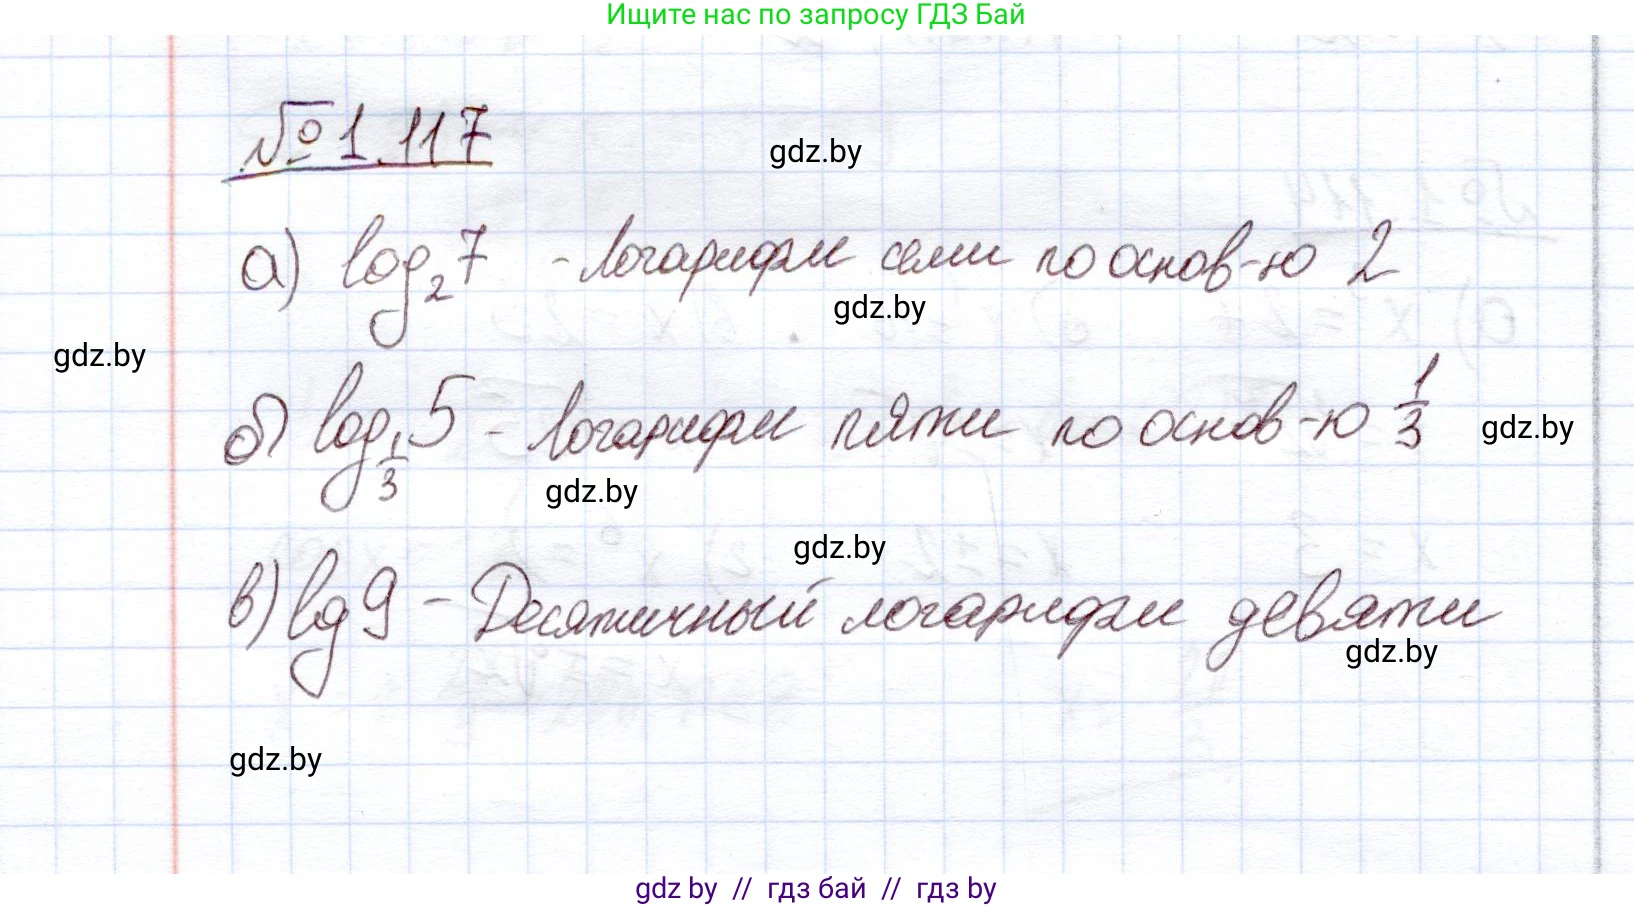 Ищите нас по запросу ГДЗ Бай
№ 1.117
gdz.by
а) log₂7 - логарифм семи по основ-ю 2
gdz.by
gdz.by
б) log_{1/3} 5 - логарифм пяти по основ-ю 1/3
gdz.by
gdz.by
gdz.by
в) lg 9 - Десятичный логарифм девяти
gdz.by
gdz.by
gdz by // гдз бай // гдз by